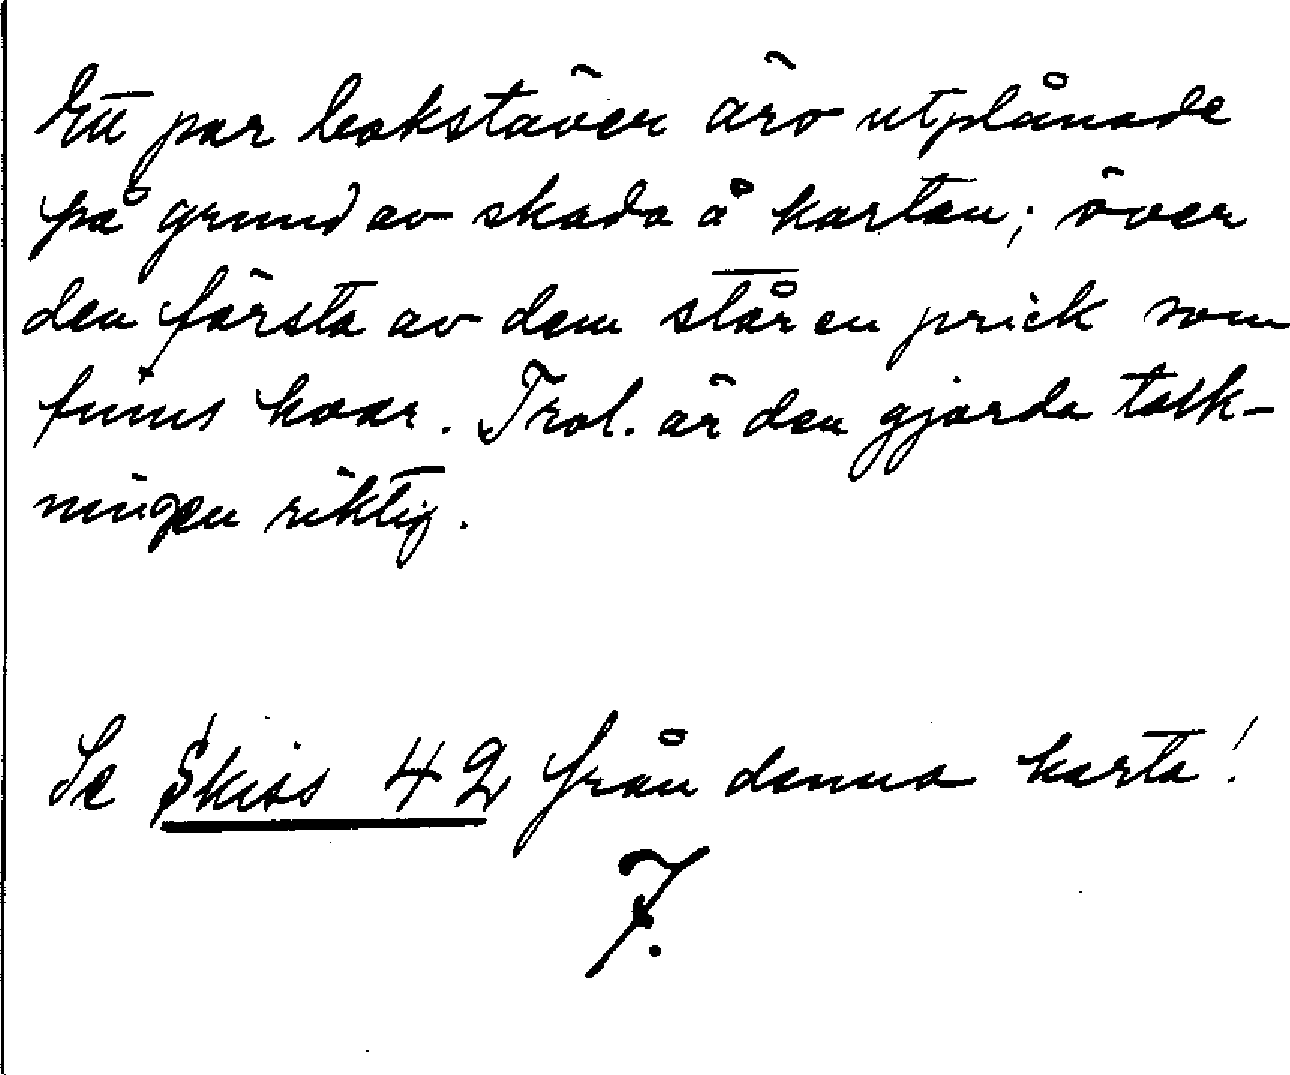 Ett par bokstäver äro utplånade
på grund av skada å kartan; över
den första av dem står en prick som
finns kvar. Trol. är den gjorda tolk-
ningen riktig.
Se Skiss 42 från denna karta!
7.